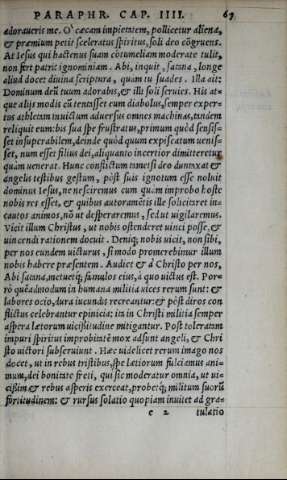 PARAPHR. CAP. IIII. 67
adoraueris me. O' cæcam impietatem, pollicetur aliena,
& præmium petit sceleratus spiritus, soli deo cõgruens.
At Iesus qui hactenus suam cõtumeliam moderate tulit,
non fert patris ignominiam. Abi, inquit, satana, longe
aliud docet diuina scriptura, quam tu suades. Illa ait:
Dominum deũ tuum adorabis, & illi soli seruies. His at-
que alijs modis cũ tentasset eum diabolus, semper exper-
tus athletam inuictum aduersus omnes machinas, tandem
reliquit eum: bis sua spe frustratus, primum quòd sensis-
set insuperabilem, deinde quòd quum expiscatum uenis-
set, num esset filius dei, aliquanto incertior dimitteretur
quàm uenerat. Hunc conflictum tametsi deo duntaxat &
angelis testibus gestum, pòst suis ignotum esse noluit
dominus Iesus, ne nesciremus cum quàm improbo hoste
nobis res esset, & quibus autoramẽtis ille soliciteret in-
cautos animos, nõ ut desperaremus, sed ut uigilaremus.
Vicit illum Christus, ut nobis ostenderet uinci posse, &
uincendi rationem docuit. Deniq; nobis uicit, non sibi,
per nos eundem uicturus, si modo promerebimur illum
nobis habere præsentem. Audiet & à Christo per nos,
Abi satana, metuetq; famulos eius, à quo uictus est. Por-
rò quẽadmodum in humana militia uices rerum sunt: &
labores ocio, dura iucundis recreantur: & pòst diros con
flictus celebrantur epinicia: ita in Christi militia semper
aspera lætorum uicissitudine mitigantur. Post toleratam
impuri spiritus improbitatẽ mox adsunt angeli, & Chri
sto uictori subseruiunt. Hæc uidelicet rerum imago nos
docet, ut in rebus tristibus, spe lætiorum fulciamus ani-
mum, dei bonitate freti, qui sic moderatur omnia, ut ui-
cißim & rebus asperis exerceat, probetq; militum suorũ
fortitudinem: & rursus solatio quopiam inuitet ad gra-
e 2 tulatio